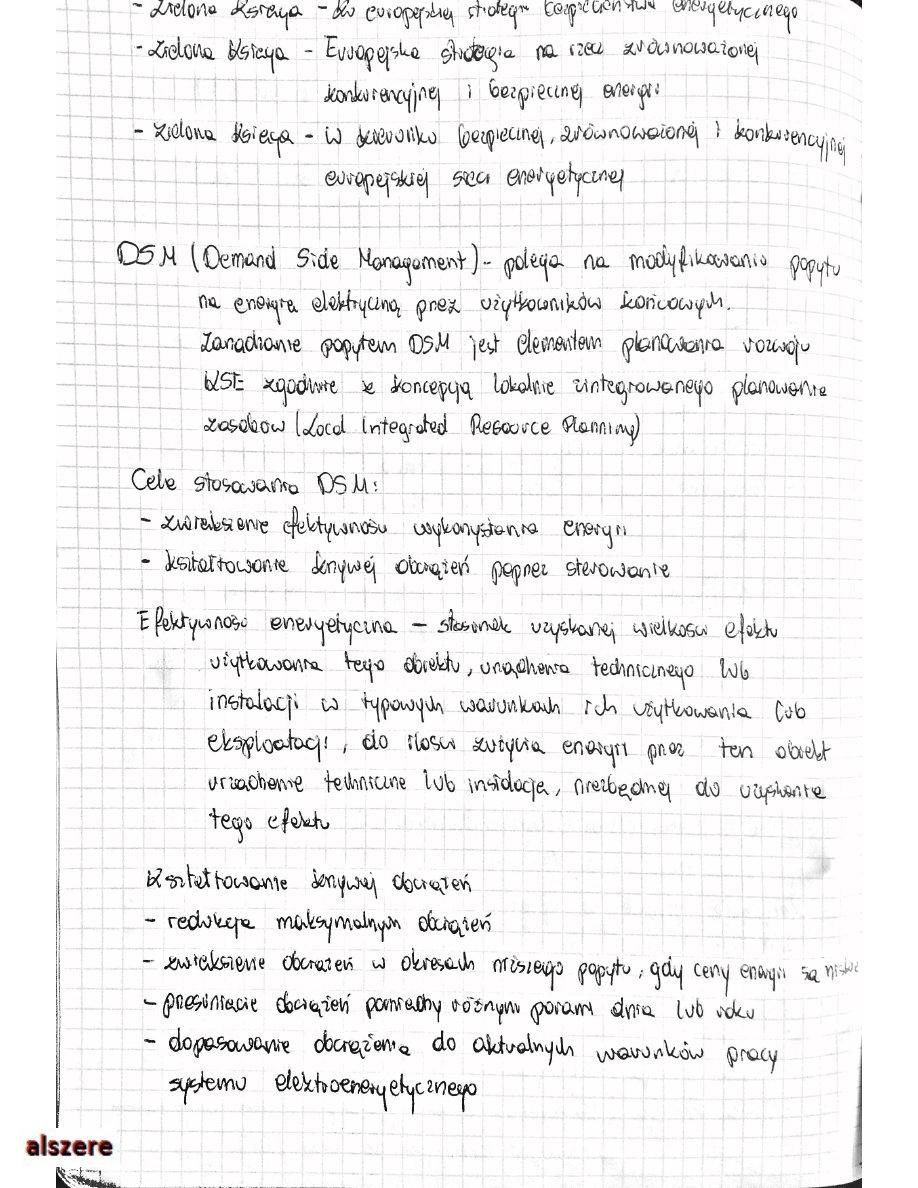 - Zielona Księga - Ku europejskiej strategii bezpieczeństwa energetycznego
- Zielona Księga - Europejska strategia na rzecz zrównoważonej
konkurencyjnej i bezpiecznej energii
- Zielona Księga - W kierunku bezpiecznej, zrównoważonej i konkurencyjnej
europejskiej sieci energetycznej
DSM (Demand Side Management) - polega na modyfikowaniu popytu
na energię elektryczną przez użytkowników końcowych.
Zarządzanie popytem DSM jest elementem planowania rozwoju
KSE zgodnie z koncepcją lokalnie zintegrowanego planowanie
zasobów (Local Integrated Resource Planning)
Cele stosowania DSM:
- zwiększenie efektywności wykorzystania energii
- kształtowanie krzywej obciążeń poprzez sterowanie
Efektywność energetyczna - stosunek uzyskanej wielkości efektu
użytkowania tego obiektu, urządzenia technicznego lub
instalacji w typowych warunkach ich użytkowania lub
eksploatacji, do ilości zużycia energii przez ten obiekt
urządzenie techniczne lub instalację, niezbędnej do uzyskania
tego efektu
Kształtowanie krzywej obciążeń
- redukcja maksymalnym obciążeń
- zwiększenie obciążeń w okresach niższego popytu, gdy ceny energii są niskie
- przesunięcie obciążeń pomiędzy różnymi porami dnia lub roku
- dopasowanie obciążenia do aktualnych warunków pracy
systemu elektroenergetycznego
alszere